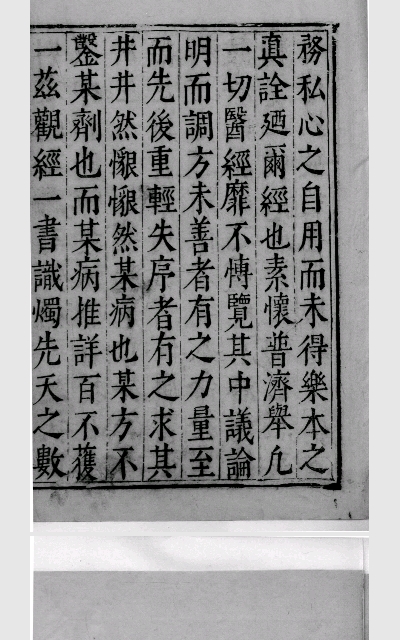 務私心之自用而未得樂本之
真詮廼爾經也素懷普濟舉凢
一切醫經靡不博覽其中議論
明而調方未善者有之力量至
而先後重輕失序者有之求其
井井然懇懇然某病也某方不
鑿某劑也而某病推詳百不獲
一茲觀經一書識燭先天之數